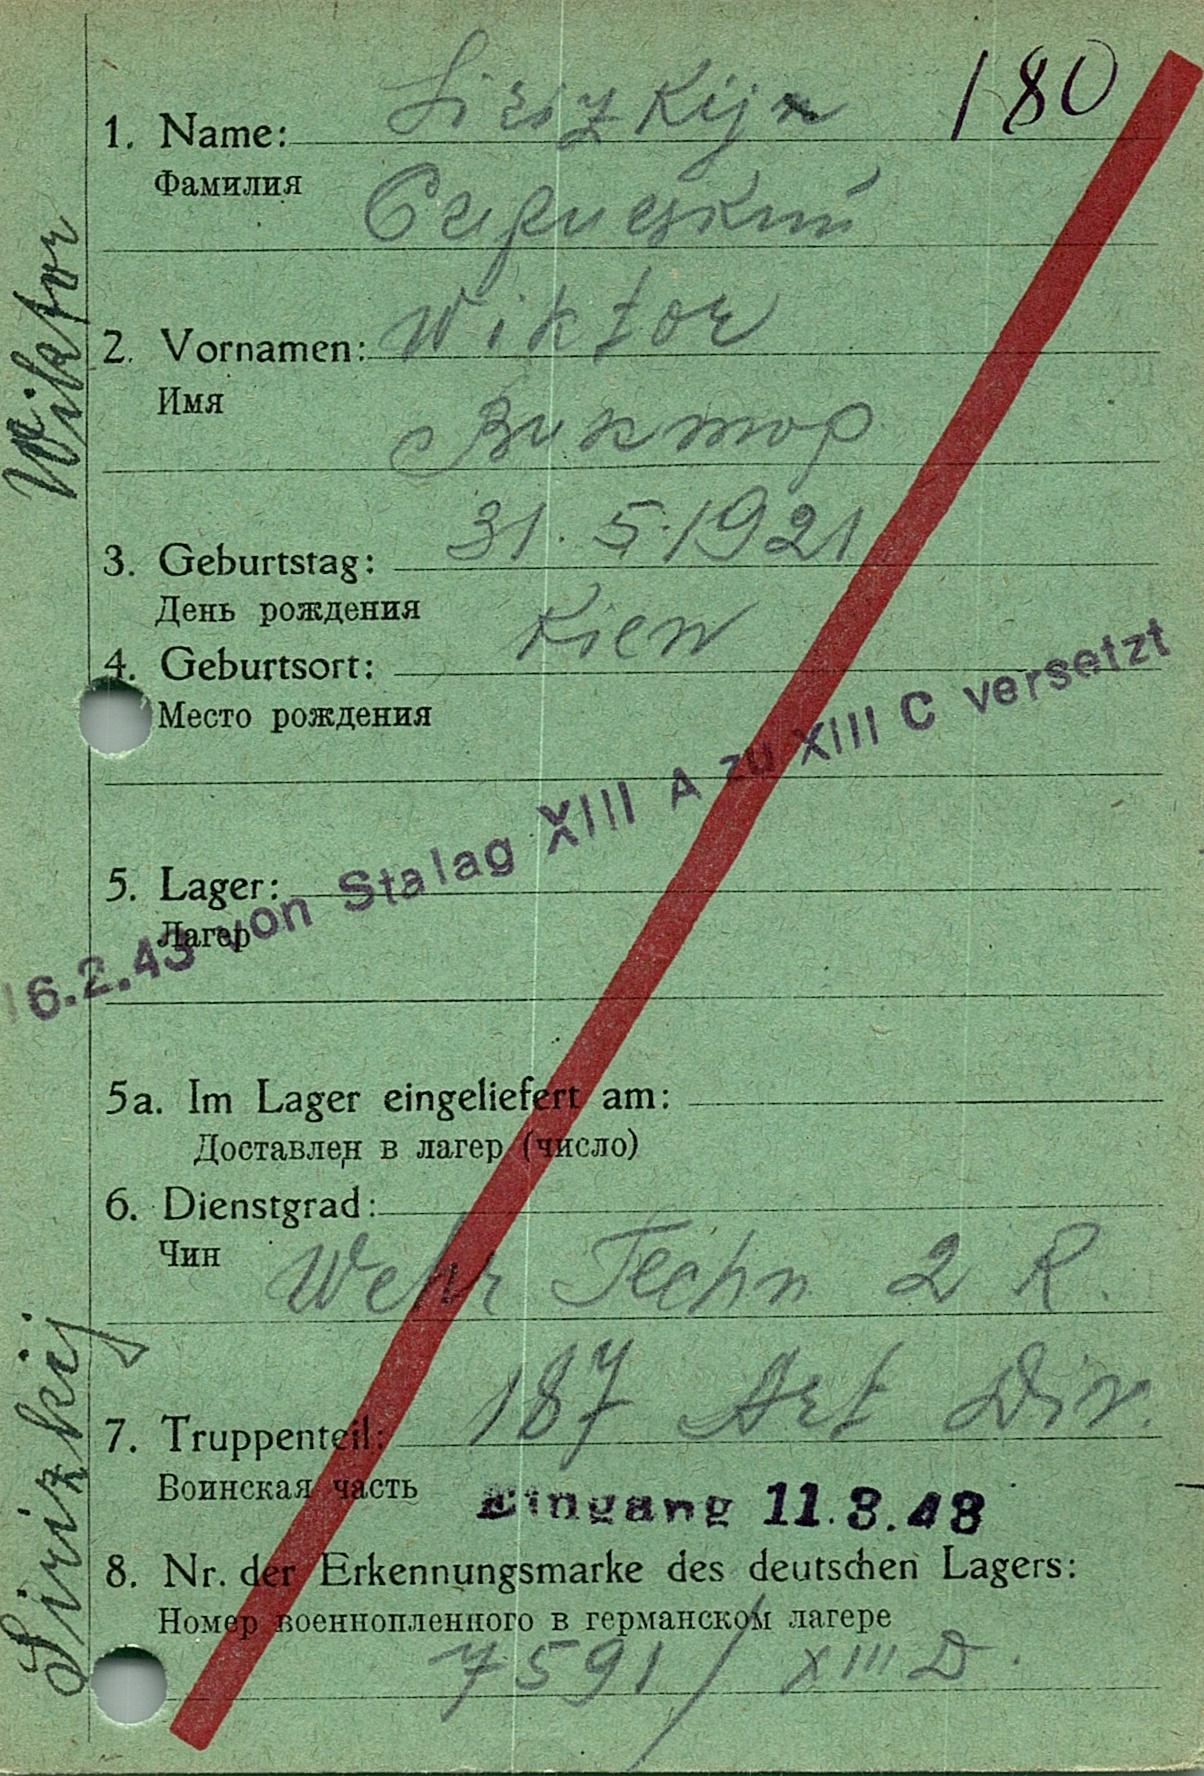 180
1. Name: Sirizkijn
Фамилия Сирицкий
2. Vornamen: Wiktor
Имя
Виктор
3. Geburtstag: 31.5.1921
День рождения
4. Geburtsort: Kiew
Место рождения
5. Lager:
Лагер
16.2.43 von Stalag XIII A zu XIII C versetzt
5a. Im Lager eingeliefert am:
Доставлен в лагер (число)
6. Dienstgrad:
Чин Wehr Techn 2 R.
7. Truppenteil: 187 Art Div.
Воинская часть
Eingang 11.3.43
8. Nr. der Erkennungsmarke des deutschen Lagers:
Номер военнопленного в германском лагере
7591 / XIII D.
Sirizkij Wiktor